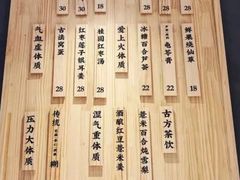 30
30
18
18
鲜果烧仙草
18
龟苓膏
22
冰糖百合芦荟
22
爱上火体质
桂圆红枣汤
18
红枣莲子银耳羹
28
古法窝蛋
28
气血虚体质
古方茶饮
薏米百合炖雪梨
22
酒酿红豆薏米羹
22
湿气重体质
28
传统
糊
28
压力大体质